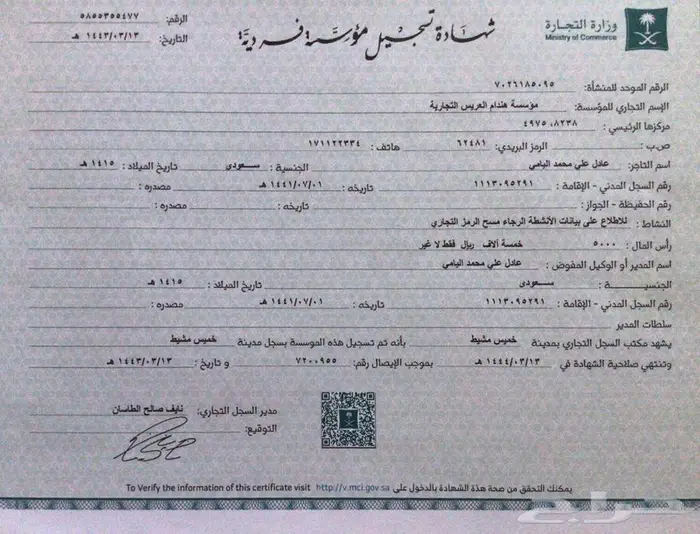 وزارة التجارة
Ministry of Commerce
شهادة تسجيل مؤسسة فردية
الرقم: ٥٨٥٥٣٥٥٤٧٧
التاريخ: ١٤٤٣/٠٣/١٣ هـ
الرقم الموحد للمنشأة: ٧٠٢٦١٨٥٠٩٥
الإسم التجاري للمؤسسة: مؤسسة هندام العريس التجارية
مركزها الرئيسي: ٨٢٣٨، ٤٩٧٥
ص.ب: الرمز البريدي: ٦٢٤٨١ هاتف: ١٧١١٢٢٣٣٤
اسم التاجر: عادل علي محمد اليامي الجنسية: سعودى تاريخ الميلاد: ١٤١٥ هـ
رقم السجل المدني - الإقامة: ١١١٣٠٩٥٢٩١ تاريخه: ١٤٤١/٠٧/٠١ هـ مصدره:
رقم الحفيظة - الجواز: تاريخه: مصدره:
النشاط: للاطلاع على بيانات الأنشطة الرجاء مسح الرمز التجاري
رأس المال: ٥٠٠٠ خمسة آلاف ريال فقط لا غير
اسم المدير أو الوكيل المفوض: عادل علي محمد اليامي
الجنسية: سعودى تاريخ الميلاد: ١٤١٥ هـ
رقم السجل المدني - الإقامة: ١١١٣٠٩٥٢٩١ تاريخه: ١٤٤١/٠٧/٠١ هـ مصدره:
سلطات المدير
يشهد مكتب السجل التجاري بمدينة خميس مشيط بأنه تم تسجيل هذه الموسسة بسجل مدينة خميس مشيط
وتنتهي صلاحية الشهادة في ١٤٤٤/٠٣/١٣ هـ بموجب الإيصال رقم: ٧٢٠٠٩٥٥ و تاريخ: ١٤٤٣/٠٣/١٣ هـ
مدير السجل التجاري: نايف صالح الطاسان
التوقيع:
يمكنك التحقق من صحة هذة الشهادة بالدخول على To Verify the information of this certificate visit http://v.mci.gov.sa
حراج